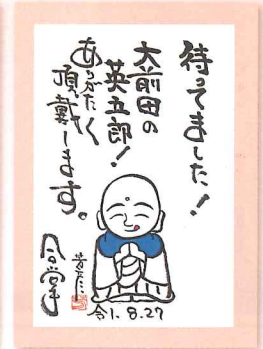 待ってました！
大前田の
英五郎！
ありがたく
頂戴します。
合掌
令1.8.27